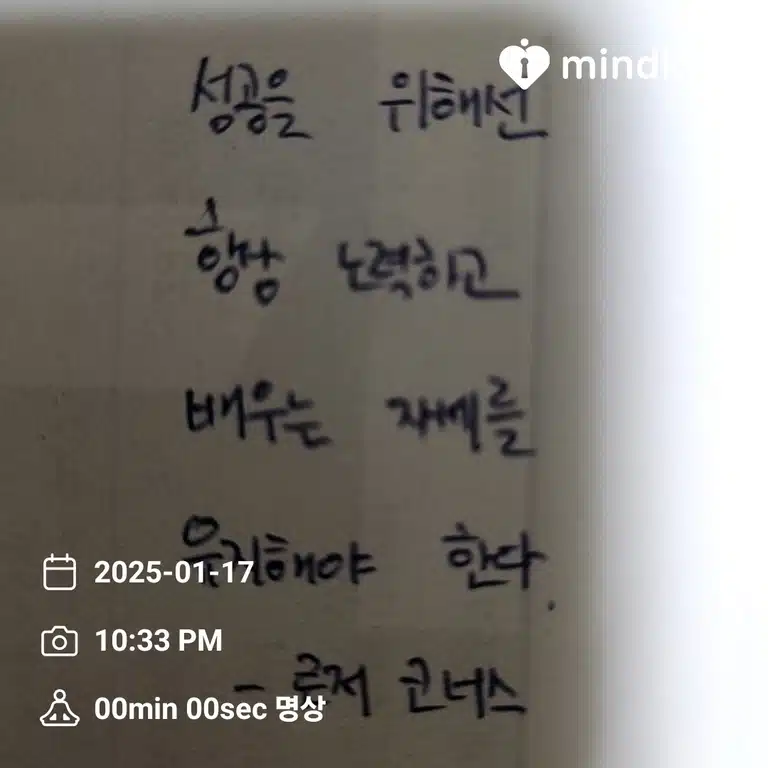 성공을 위해선
항상 노력하고
배우는 자세를
유지해야 한다.
- 로저 코너스
2025-01-17
10:33 PM
00min 00sec 명상